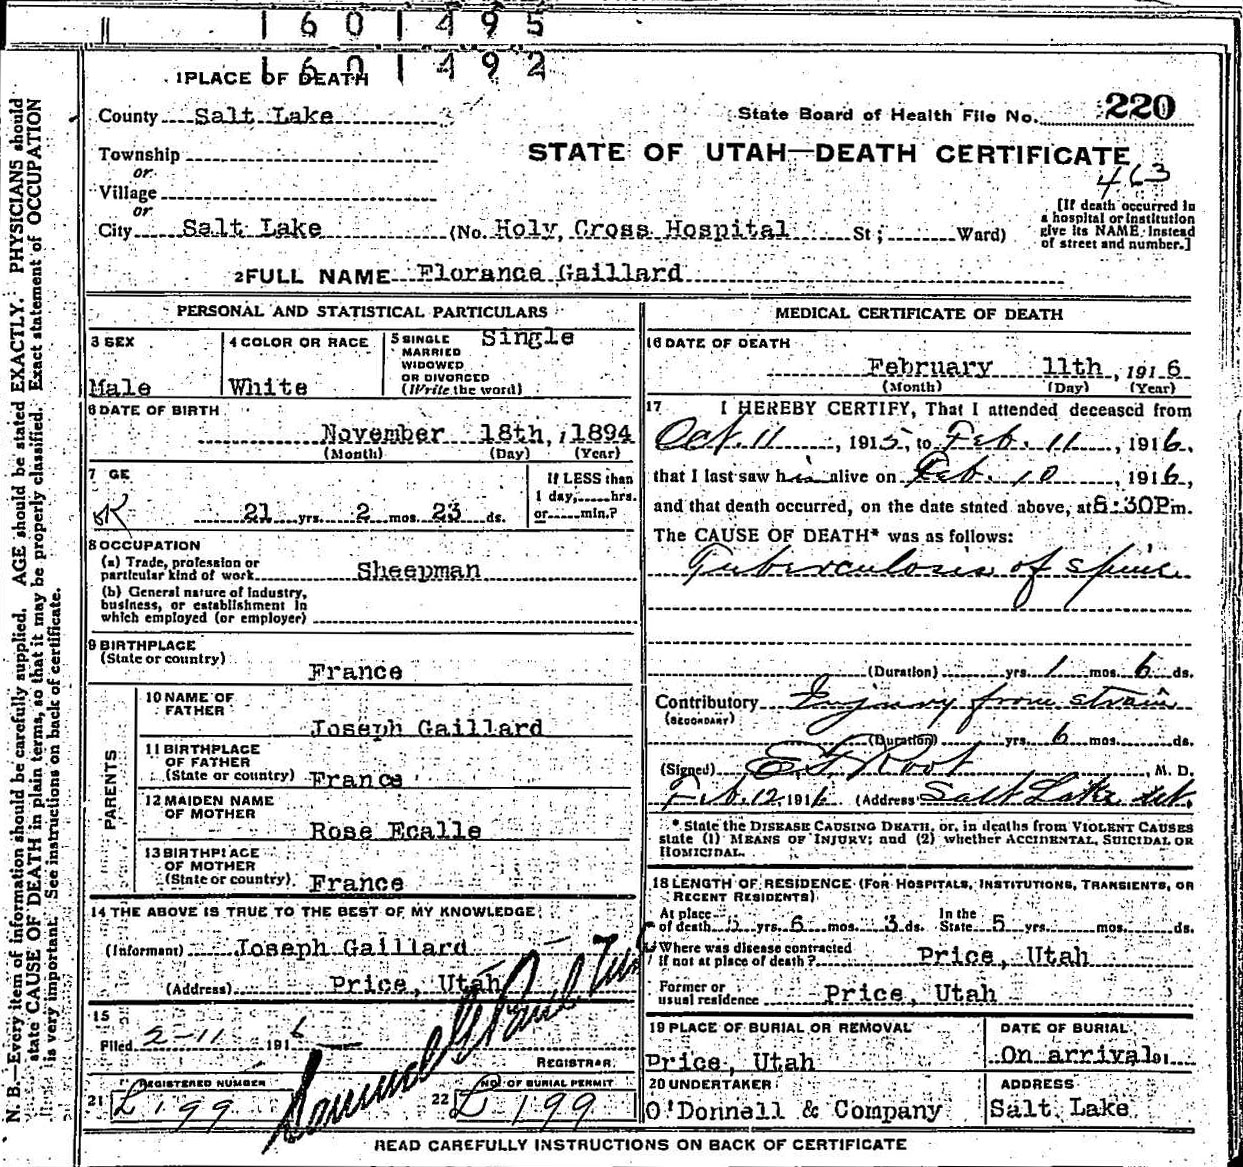 1601495
1601492
1 PLACE OF DEATH
County Salt Lake
State Board of Health File No. 220
Township
or
Village
or
STATE OF UTAH—DEATH CERTIFICATE
463
City Salt Lake (No. Holy Cross Hospital St; Ward)
[If death occurred in
a hospital or institution
give its NAME instead
of street and number.]
2 FULL NAME Florance Gaillard
PERSONAL AND STATISTICAL PARTICULARS
3 SEX
Male
4 COLOR OR RACE
White
5 SINGLE
MARRIED
WIDOWED
OR DIVORCED
(Write the word)
Single
6 DATE OF BIRTH
November 18th, 1894
(Month) (Day) (Year)
7 GE
21 yrs. 2 mos. 23 ds.
If LESS than
1 day,.....hrs.
or.....min.?
8 OCCUPATION
(a) Trade, profession or
particular kind of work Sheepman
(b) General nature of industry,
business, or establishment in
which employed (or employer)
9 BIRTHPLACE
(State or country)
France
PARENTS
10 NAME OF
FATHER
Joseph Gaillard
11 BIRTHPLACE
OF FATHER
(State or country) France
12 MAIDEN NAME
OF MOTHER
Rose Ecalle
13 BIRTHPLACE
OF MOTHER
(State or country) France
14 THE ABOVE IS TRUE TO THE BEST OF MY KNOWLEDGE
(Informant) Joseph Gaillard
(Address) Price, Utah
15
Filed 2-11 1916
REGISTRAR
21 REGISTERED NUMBER
199
22 NO. OF BURIAL PERMIT
199
MEDICAL CERTIFICATE OF DEATH
16 DATE OF DEATH
February 11th, 1916
(Month) (Day) (Year)
17 I HEREBY CERTIFY, That I attended deceased from
Oct. 11, 1915, to Feb. 11, 1916,
that I last saw him alive on Feb. 10, 1916,
and that death occurred, on the date stated above, at 8:30P m.
The CAUSE OF DEATH* was as follows:
Tuberculosis of spine
(Duration) yrs. 1 mos. 6 ds.
Contributory Injury from strain
(SECONDARY)
(Duration) yrs. 6 mos. ds.
(Signed) E F Root, M. D.
Feb. 12, 1916 (Address) Salt Lake Ut.
* State the DISEASE CAUSING DEATH, or, in deaths from VIOLENT CAUSES
state (1) MEANS OF INJURY; and (2) whether ACCIDENTAL, SUICIDAL OR
HOMICIDAL.
18 LENGTH OF RESIDENCE (FOR HOSPITALS, INSTITUTIONS, TRANSIENTS, OR
RECENT RESIDENTS)
At place
of death 5 yrs. 6 mos. 3 ds. In the State 5 yrs. mos. ds.
Where was disease contracted
if not at place of death? Price, Utah
Former or
usual residence Price, Utah
19 PLACE OF BURIAL OR REMOVAL
Price, Utah
DATE OF BURIAL
On arrival 191
20 UNDERTAKER
O'Donnell & Company
ADDRESS
Salt Lake
READ CAREFULLY INSTRUCTIONS ON BACK OF CERTIFICATE
N. B.—Every item of information should be carefully supplied. AGE should be stated EXACTLY. PHYSICIANS should
state CAUSE OF DEATH in plain terms, so that it may be properly classified. Exact statement of OCCUPATION
is very important. See instructions on back of certificate.